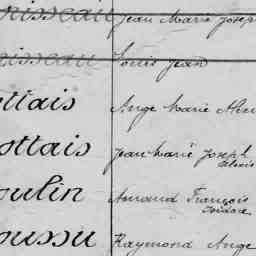 oisseau Jean Marie Joseph
oisseau Louis Jean
ottais Ange Marie
ottais Jean Marie Joseph
Alexis
oulin Armand François
Isidore
oussu Raymond Ange